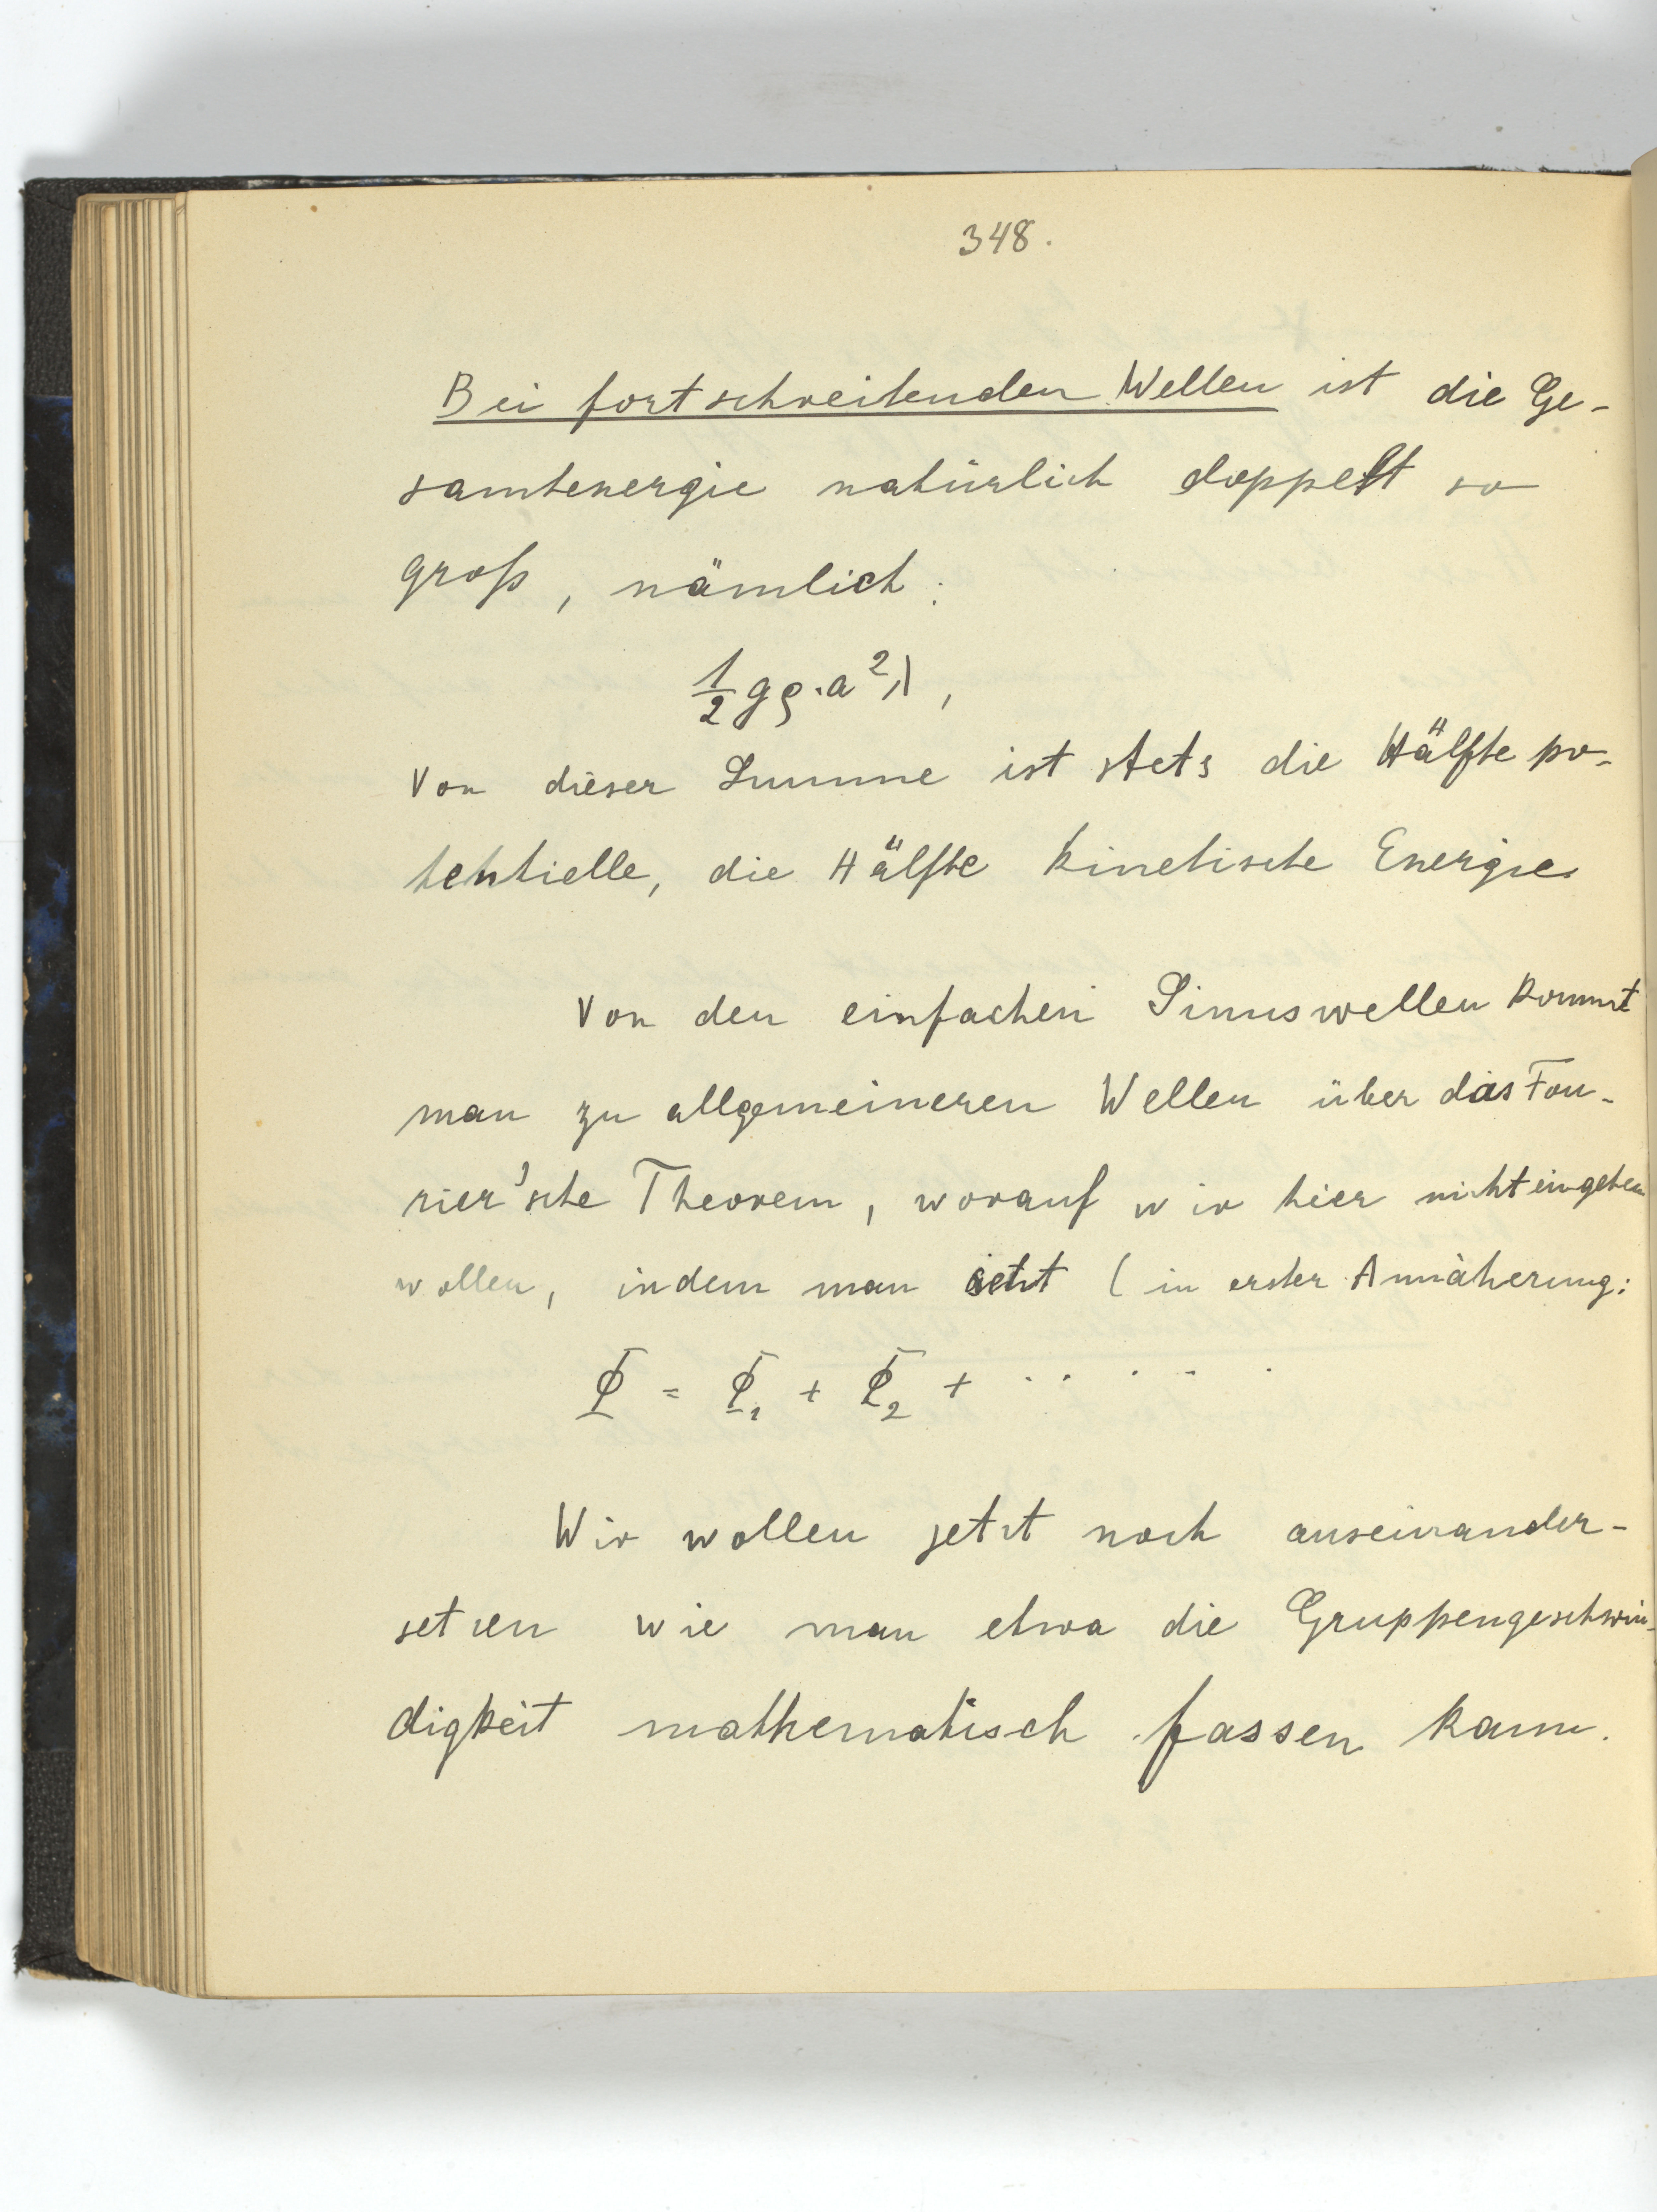 348.
Bei fortschreitenden Wellen ist die Ge-
samtenergie natürlich doppelt so
groß, nämlich:
½ gρ·a²λ,
Von dieser Summe ist stets die Hälfte po-
tentielle, die Hälfte kinetische Energie.
Von den einfachen Sinuswellen kommt
man zu allgemeineren Wellen über das Fou-
rier'sche Theorem, worauf wir hier nicht eingehen
wollen, indem man setzt (in erster Annäherung:
Φ = Φ₁ + Φ₂ + . . . . .
Wir wollen jetzt noch auseinander-
setzen wie man etwa die Gruppengeschwin-
digkeit mathematisch fassen kann.